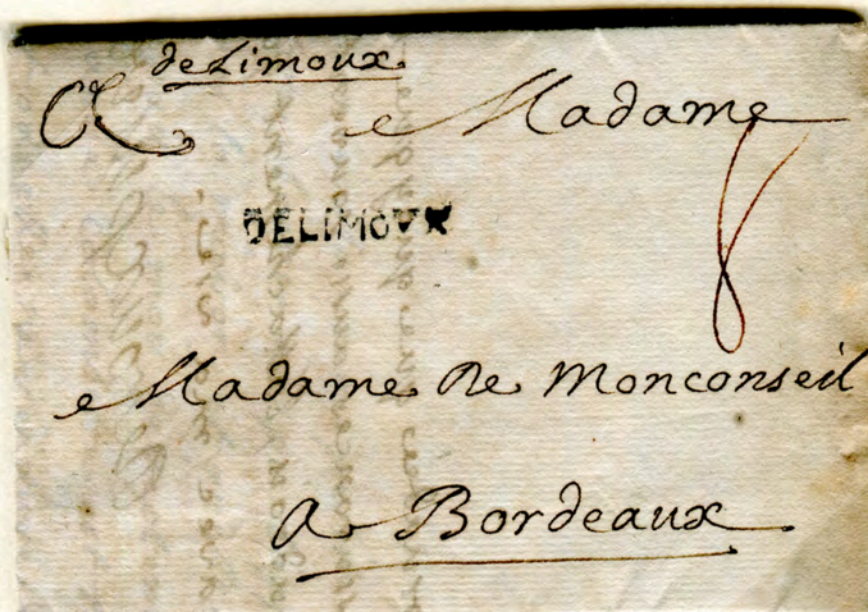 de Limoux
A Madame
DELIMOUX
8
Madame De Monconseil
a Bordeaux